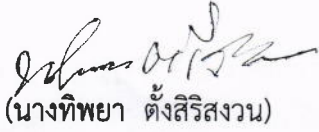 (นางทิพยา ตั้งสิริสงวน)